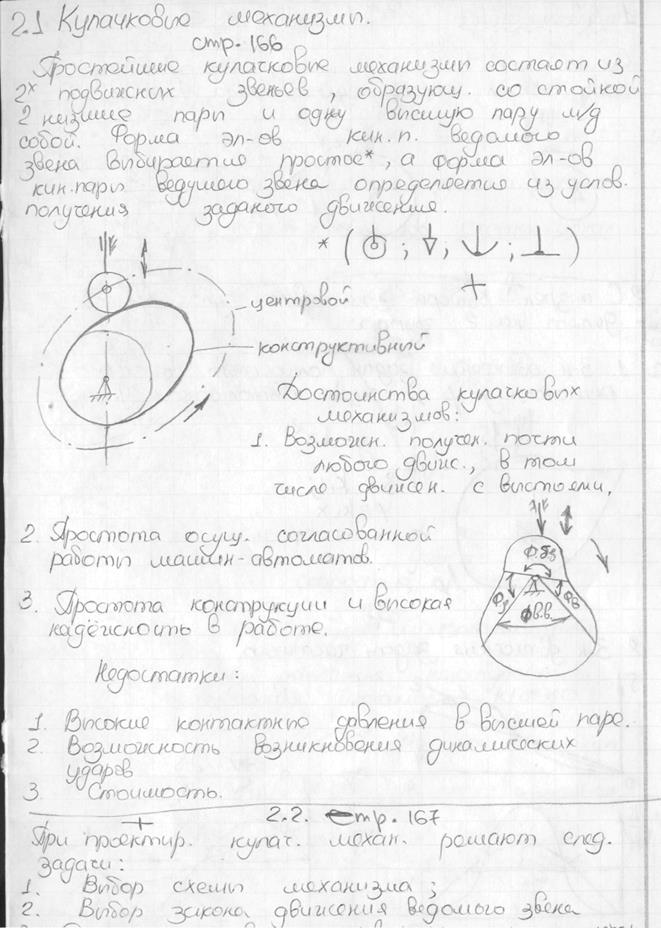 2.1 Кулачковые механизмы.
стр. 166
Простейшие кулачковые механизмы состаят из
2х подвижных звеньев, образующ. со стойкой
2 низшие пары и одну высшую пару м/д
собой. Форма эл-ов кин.п. ведомого
звена выбирается простое*, а форма эл-ов
кин.пары ведущего звена определяется из услов.
получения заданого движения.
* ( ; ; ; )
+
центровой
конструктивный
Достоинства кулачковых
механизмов:
1. Возможн. получен. почти
любого движ., в том
числе движен. с выстоями,
2. Простота осущ. согласованной
работы машин-автоматов.
3. Простота конструкции и высокая
надёжность в работе.
Фбв
Фв.в.
Недостатки:
1. Высокие контактные давления в высшей паре.
2. Возможность возникновения динамических
ударов
3 Стоимость.
+
2.2. стр. 167
При проектир. кулач. механ. решают след.
задачи:
1. Выбор схемы механизма;
2. Выбор закона движения ведомого звена